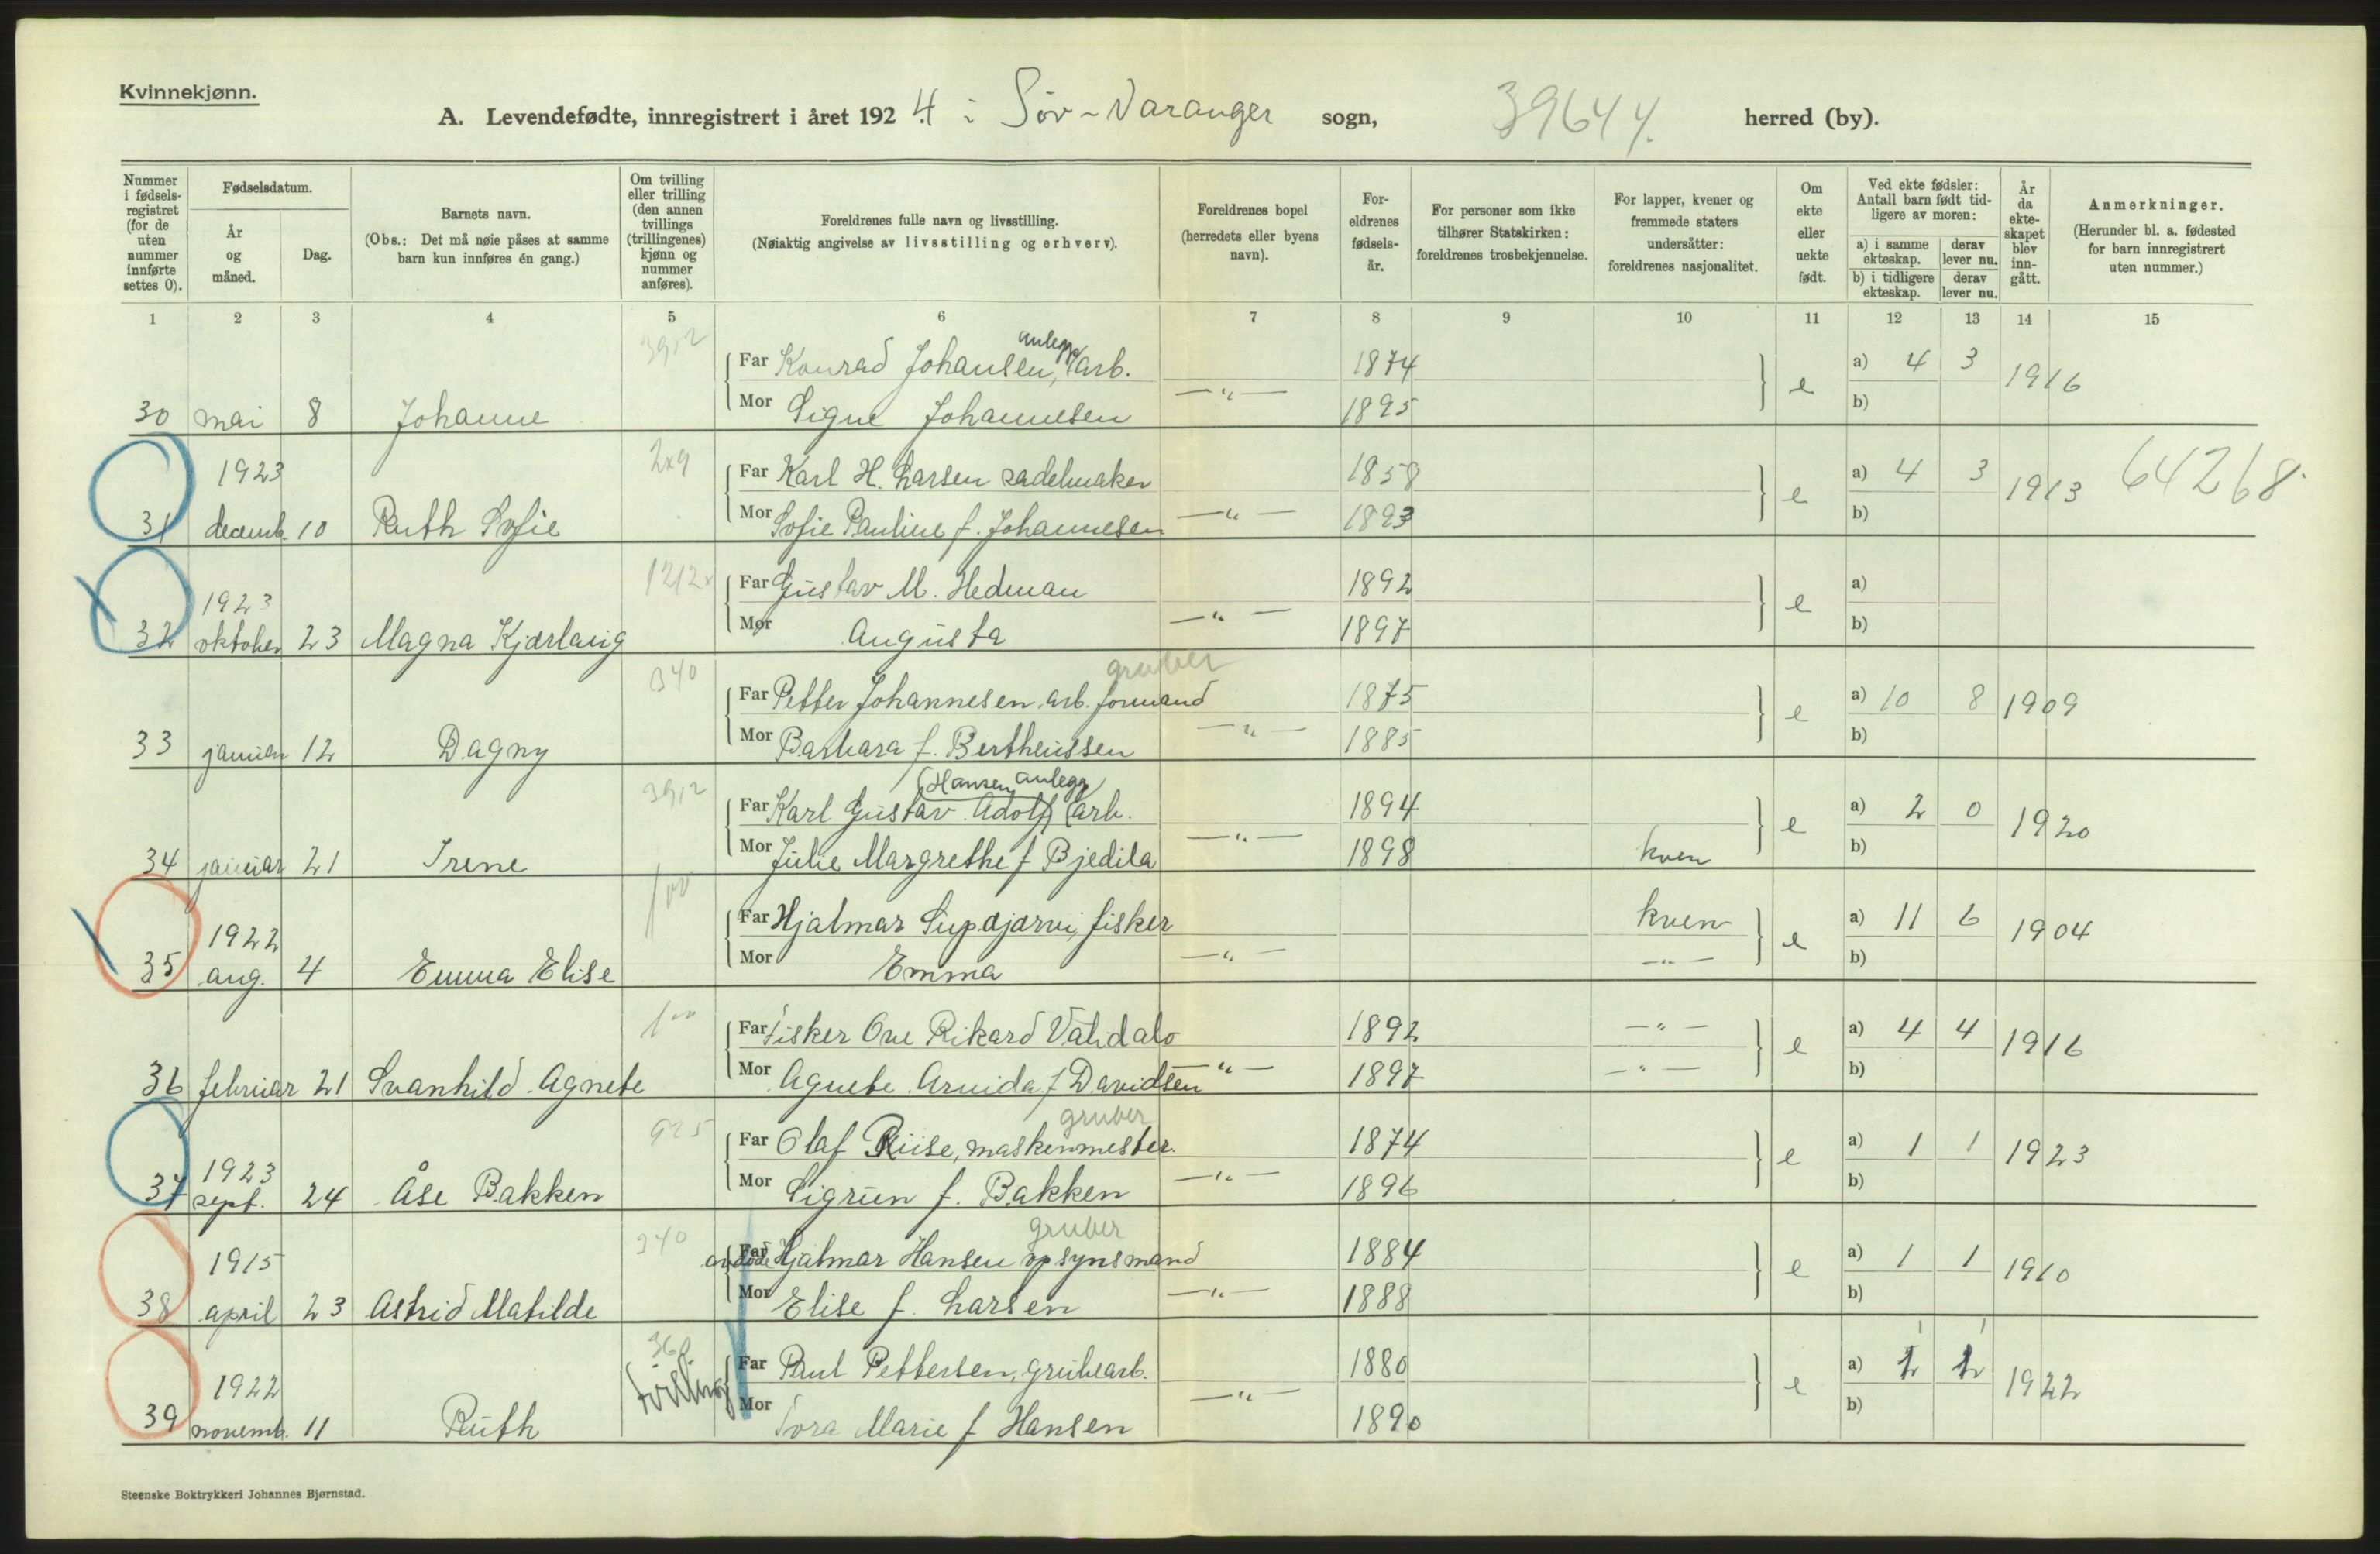 Kvinnekjønn.
A. Levendefødte, innregistrert i året 1924 i Sör-Varanger sogn, 39644. herred (by).
Nummer i fødselsregistret (for de uten nummer innførte settes 0).
Fødselsdatum.
År og måned.
Dag.
Barnets navn.
(Obs.: Det må nøie påses at samme barn kun innføres én gang.)
Om tvilling eller trilling (den annen tvillings (trillingenes) kjønn og nummer anføres).
Foreldrenes fulle navn og livsstilling.
(Nøiaktig angivelse av livsstilling og erhverv).
Foreldrenes bopel (herredets eller byens navn).
Foreldrenes fødselsår.
For personer som ikke tilhører Statskirken: foreldrenes trosbekjennelse.
For lapper, kvener og fremmede staters undersåtter: foreldrenes nasjonalitet.
Om ekte eller uekte født.
Ved ekte fødsler: Antall barn født tidligere av moren:
a) i samme ekteskap.
derav lever nu.
b) i tidligere ekteskap.
derav lever nu.
År da ekteskapet blev inngått.
Anmerkninger.
(Herunder bl. a. fødested for barn innregistrert uten nummer.)
1 2 3 4 5 6 7 8 9 10 11 12 13 14 15
3912 anlegs
Far Konrad Johansen, arb. 1874 a) 4 3 1916
30 mai 8 Johanne Mor Signe Johannesen —"— 1895 e b)
1923 2x9 Far Karl H. Larsen sadelmaker 1858 a) 4 3 1913 64268.
31 decemb. 10 Ruth Sofie Mor Sofie Pauline f. Johannesen —"— 1893 e b)
1923 1212x Far Gustav M. Hedman 1892 a)
32 oktober 23 Magna Kjærlaug Mor Augusta —"— 1897 e b)
340 gruber
Far Petter Johannesen arb. formand 1875 a) 10 8 1909
33 januar 12 Dagny Mor Barbara f. Bertheussen —"— 1885 e b)
3912 (Hansen anlegg
Far Karl Gustav Adolf (arb. 1894 a) 2 0 1920
34 januar 21 Irene Mor Julie Margrethe f Bjedila —"— 1898 kven e b)
1922 100 Far Hjalmar fisker kven a) 11 6 1904
35 aug. 4 Emma Elise Mor Emma —"— —"— e b)
100 Far Fisker Ove Rikard Validalo 1892 —"— a) 4 4 1916
36 februar 21 Svanhild Agnete Mor Agnete Arvida f Davidsen —"— 1897 —"— e b)
925 gruber
1923 Far Olaf Riise, maskinmester. 1874 a) 1 1 1923
37 sept. 24 Åse Bakken Mor Sigrun f. Bakken —"— 1896 e b)
340 gruber
1915 Far Hjalmar Hansen opsynsmand 1884 a) 1 1 1910
38 april 23 Astrid Matilde Mor Elise f. Larsen —"— 1888 e b)
360 1 1
1922 tvilling Far Paul Pettersen, grubearb. 1880 a) 1922
39 novemb. 11 Ruth Mor Tora Marie f Hansen —"— 1890 e b)
Steenske Boktrykkeri Johannes Bjørnstad.